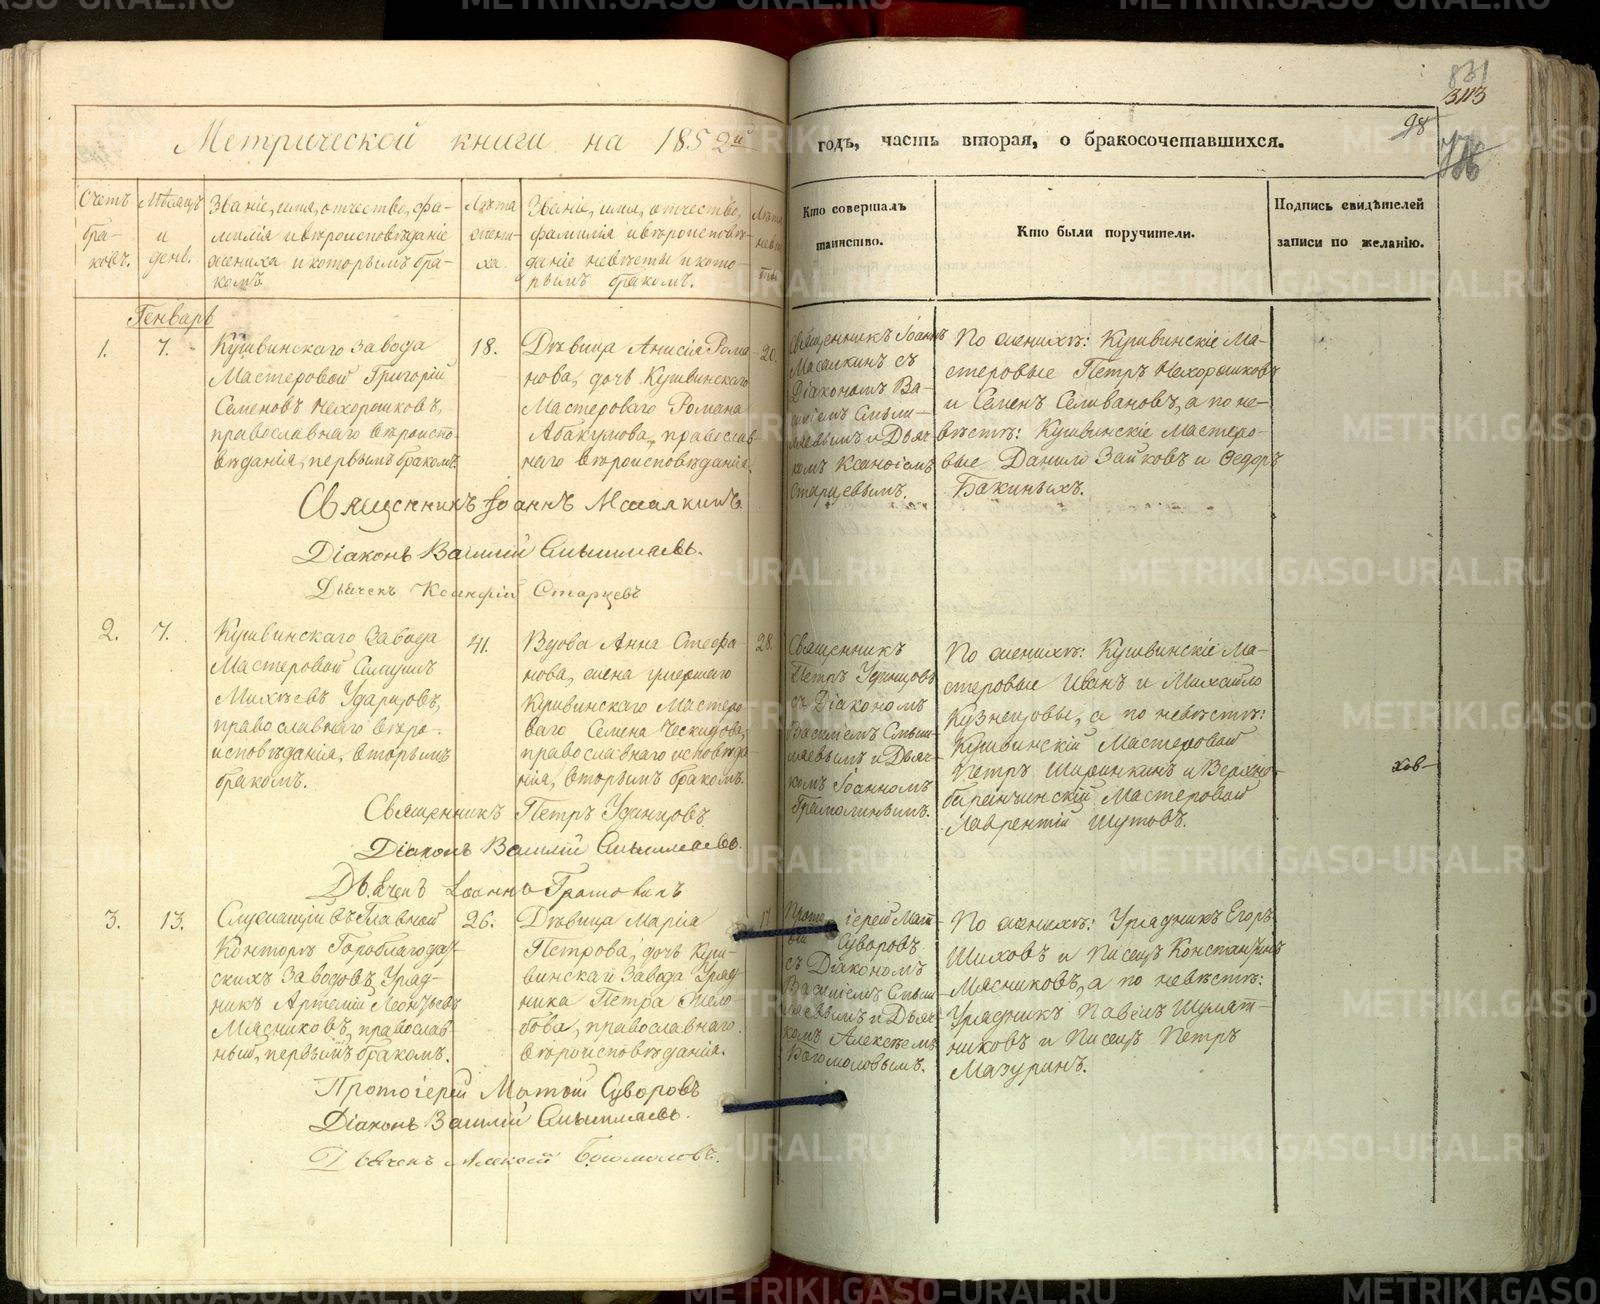 831
343
98
Метрической книги на 1852й
годъ, часть вторая, о бракосочетавшихся.
Счетъ бра-ковъ.
Мѣсяцъ и день.
Званіе, имя, отчество, фа-
милія и вѣроисповѣданіе
жениха и которымъ бра-
комъ.
Лѣта жени-ха.
Званіе, имя, отчество,
фамилія и вѣроисповѣ-
даніе невѣсты и кото-
рымъ бракомъ.
Лѣта невѣсты
Кто совершалъ
таинство.
Кто были поручители.
Подпись свидѣтелей
записи по желанію.
Генварь
1.
7.
Кушвинскаго Завода
Мастеровой Григорій
Семеновъ Нехорошковъ,
православнаго вѣроиспо-
вѣданія, первымъ бракомъ.
18.
Дѣвица Анисія Рома-
нова, дочь Кушвинскаго
Мастероваго Романа
Абакумова, православ-
наго вѣроисповѣданія.
20.
Священникъ Іоаннъ
Масалкинъ съ
Діакономъ Ва-
силіемъ Смыш-
ляевымъ и Дьяч-
комъ Ксенофіемъ
Старцевымъ.
По женихѣ: Кушвинскіе Ма-
стеровые Петръ Нехорошковъ
и Семенъ Селивановъ, а по не-
вѣстѣ: Кушвинскіе Мастеро-
вые Данило Зайковъ и Ѳедоръ
Бакиныхъ.
Священникъ Іоаннъ Масалкинъ
Діаконъ Василій Смышляевъ.
Дьячекъ Ксенофій Старцевъ
2.
7.
Кушвинскаго Завода
Мастеровой
Михѣевъ Ударцовъ,
православнаго вѣро-
исповѣданія, вторымъ
бракомъ.
41.
Вдова Анна Стефа-
нова, жена умершаго
Кушвинскаго Мастеро-
ваго Семена Ческидова,
православнаго исповѣда-
нія, вторымъ бракомъ.
28.
Священникъ
Петръ Удинцовъ
съ Діакономъ
Василіемъ Смыш-
ляевымъ и Дьяч-
комъ Іоанномъ
Грамолинымъ.
По женихѣ: Кушвинскіе Ма-
стеровые Иванъ и Михайло
Кузнецовы, а по невѣстѣ:
Кушвинскій Мастеровой
Петръ Ширинкинъ и Верхно-
баранчинскій Мастеровой
Лаврентій Шутовъ.
Священникъ Петръ Удинцовъ.
Діаконъ Василій Смышляевъ.
Дьячекъ Іоаннъ
3.
13.
Служащій въ Главной
Конторѣ Гороблагодат-
скихъ Заводовъ Уряд-
никъ Артемій Леонтьевъ
Мясниковъ, православ-
ный, первымъ бракомъ.
26.
Дѣвица Марія
Петрова, дочь Куш-
винскаго Завода Уряд-
ника Петра Жело-
бова, православнаго
вѣроисповѣданія.
17.
Прото-іерей Мат-
ѳій Суворовъ
съ Діакономъ
Василіемъ Смыш-
ляевымъ и Дьяч-
комъ Алексѣемъ
Богомоловымъ.
По женихѣ: Урядникъ Егоръ
Шиховъ и Писецъ Константинъ
Мясниковъ, а по невѣстѣ:
Урядникъ Павелъ Шумат-
никовъ и Писецъ Петръ
Мазуринъ.
Протоіерей Матѳій Суворовъ
Діаконъ Василій Смышляевъ.
Дьячекъ Алексѣй Богомоловъ.
хов-
METRIKI.GASO-URAL.RU